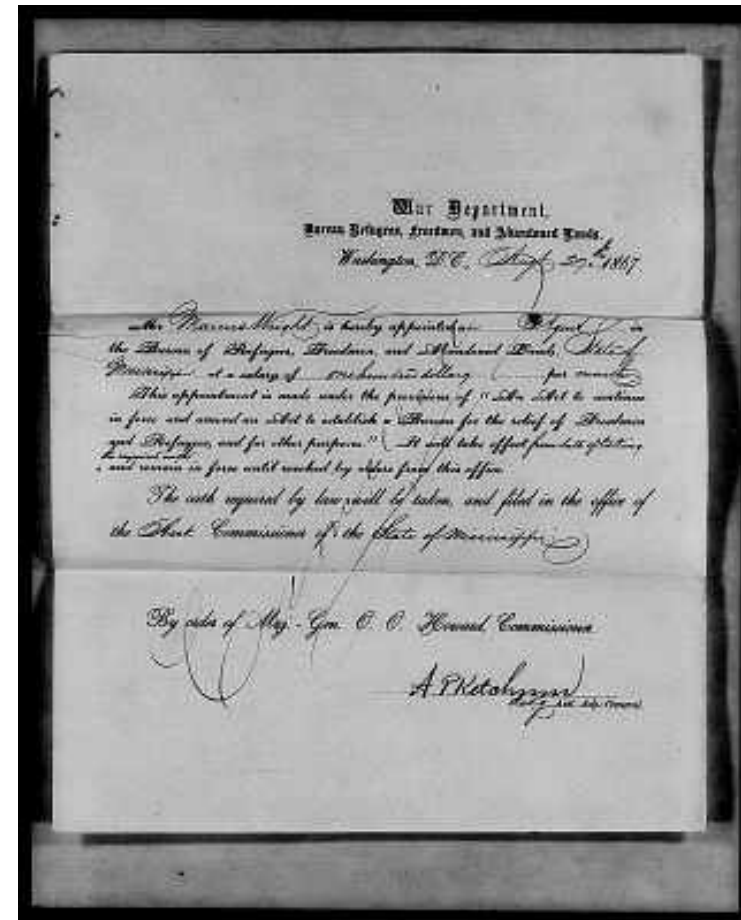 War Department,
Bureau Refugees, Freedmen, and Abandoned Lands,
Washington, D.C., Augt 27th 1867
Mr Marcus Wright is hereby appointed an Agent in
the Bureau of Refugees, Freedmen, and Abandoned Lands, State of
Mississippi at a salary of one hundred dollars per month
This appointment is made under the provisions of "An Act to continue
in force and amend an Act to establish a Bureau for the relief of Freedmen
and Refugees, and for other purposes." It will take effect from date of taking
the required oath
and remain in force until revoked by orders from this office.
The oath required by law will be taken, and filed in the office of
the Asst. Commissioner of the State of Mississippi
By order of Maj.-Gen. O. O. Howard, Commissioner
A P Ketchum
Actg Asst. Adj. General